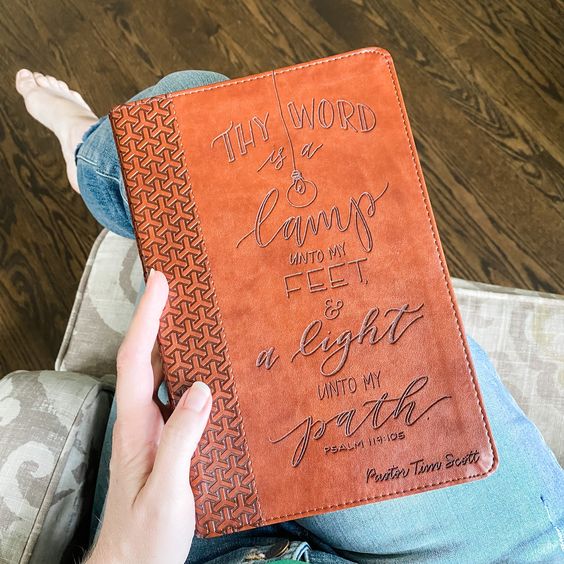 THY WORD
is a
lamp
UNTO MY
FEET,
&
a light
UNTO MY
path.
PSALM 119:105
Pastor Tim Scott